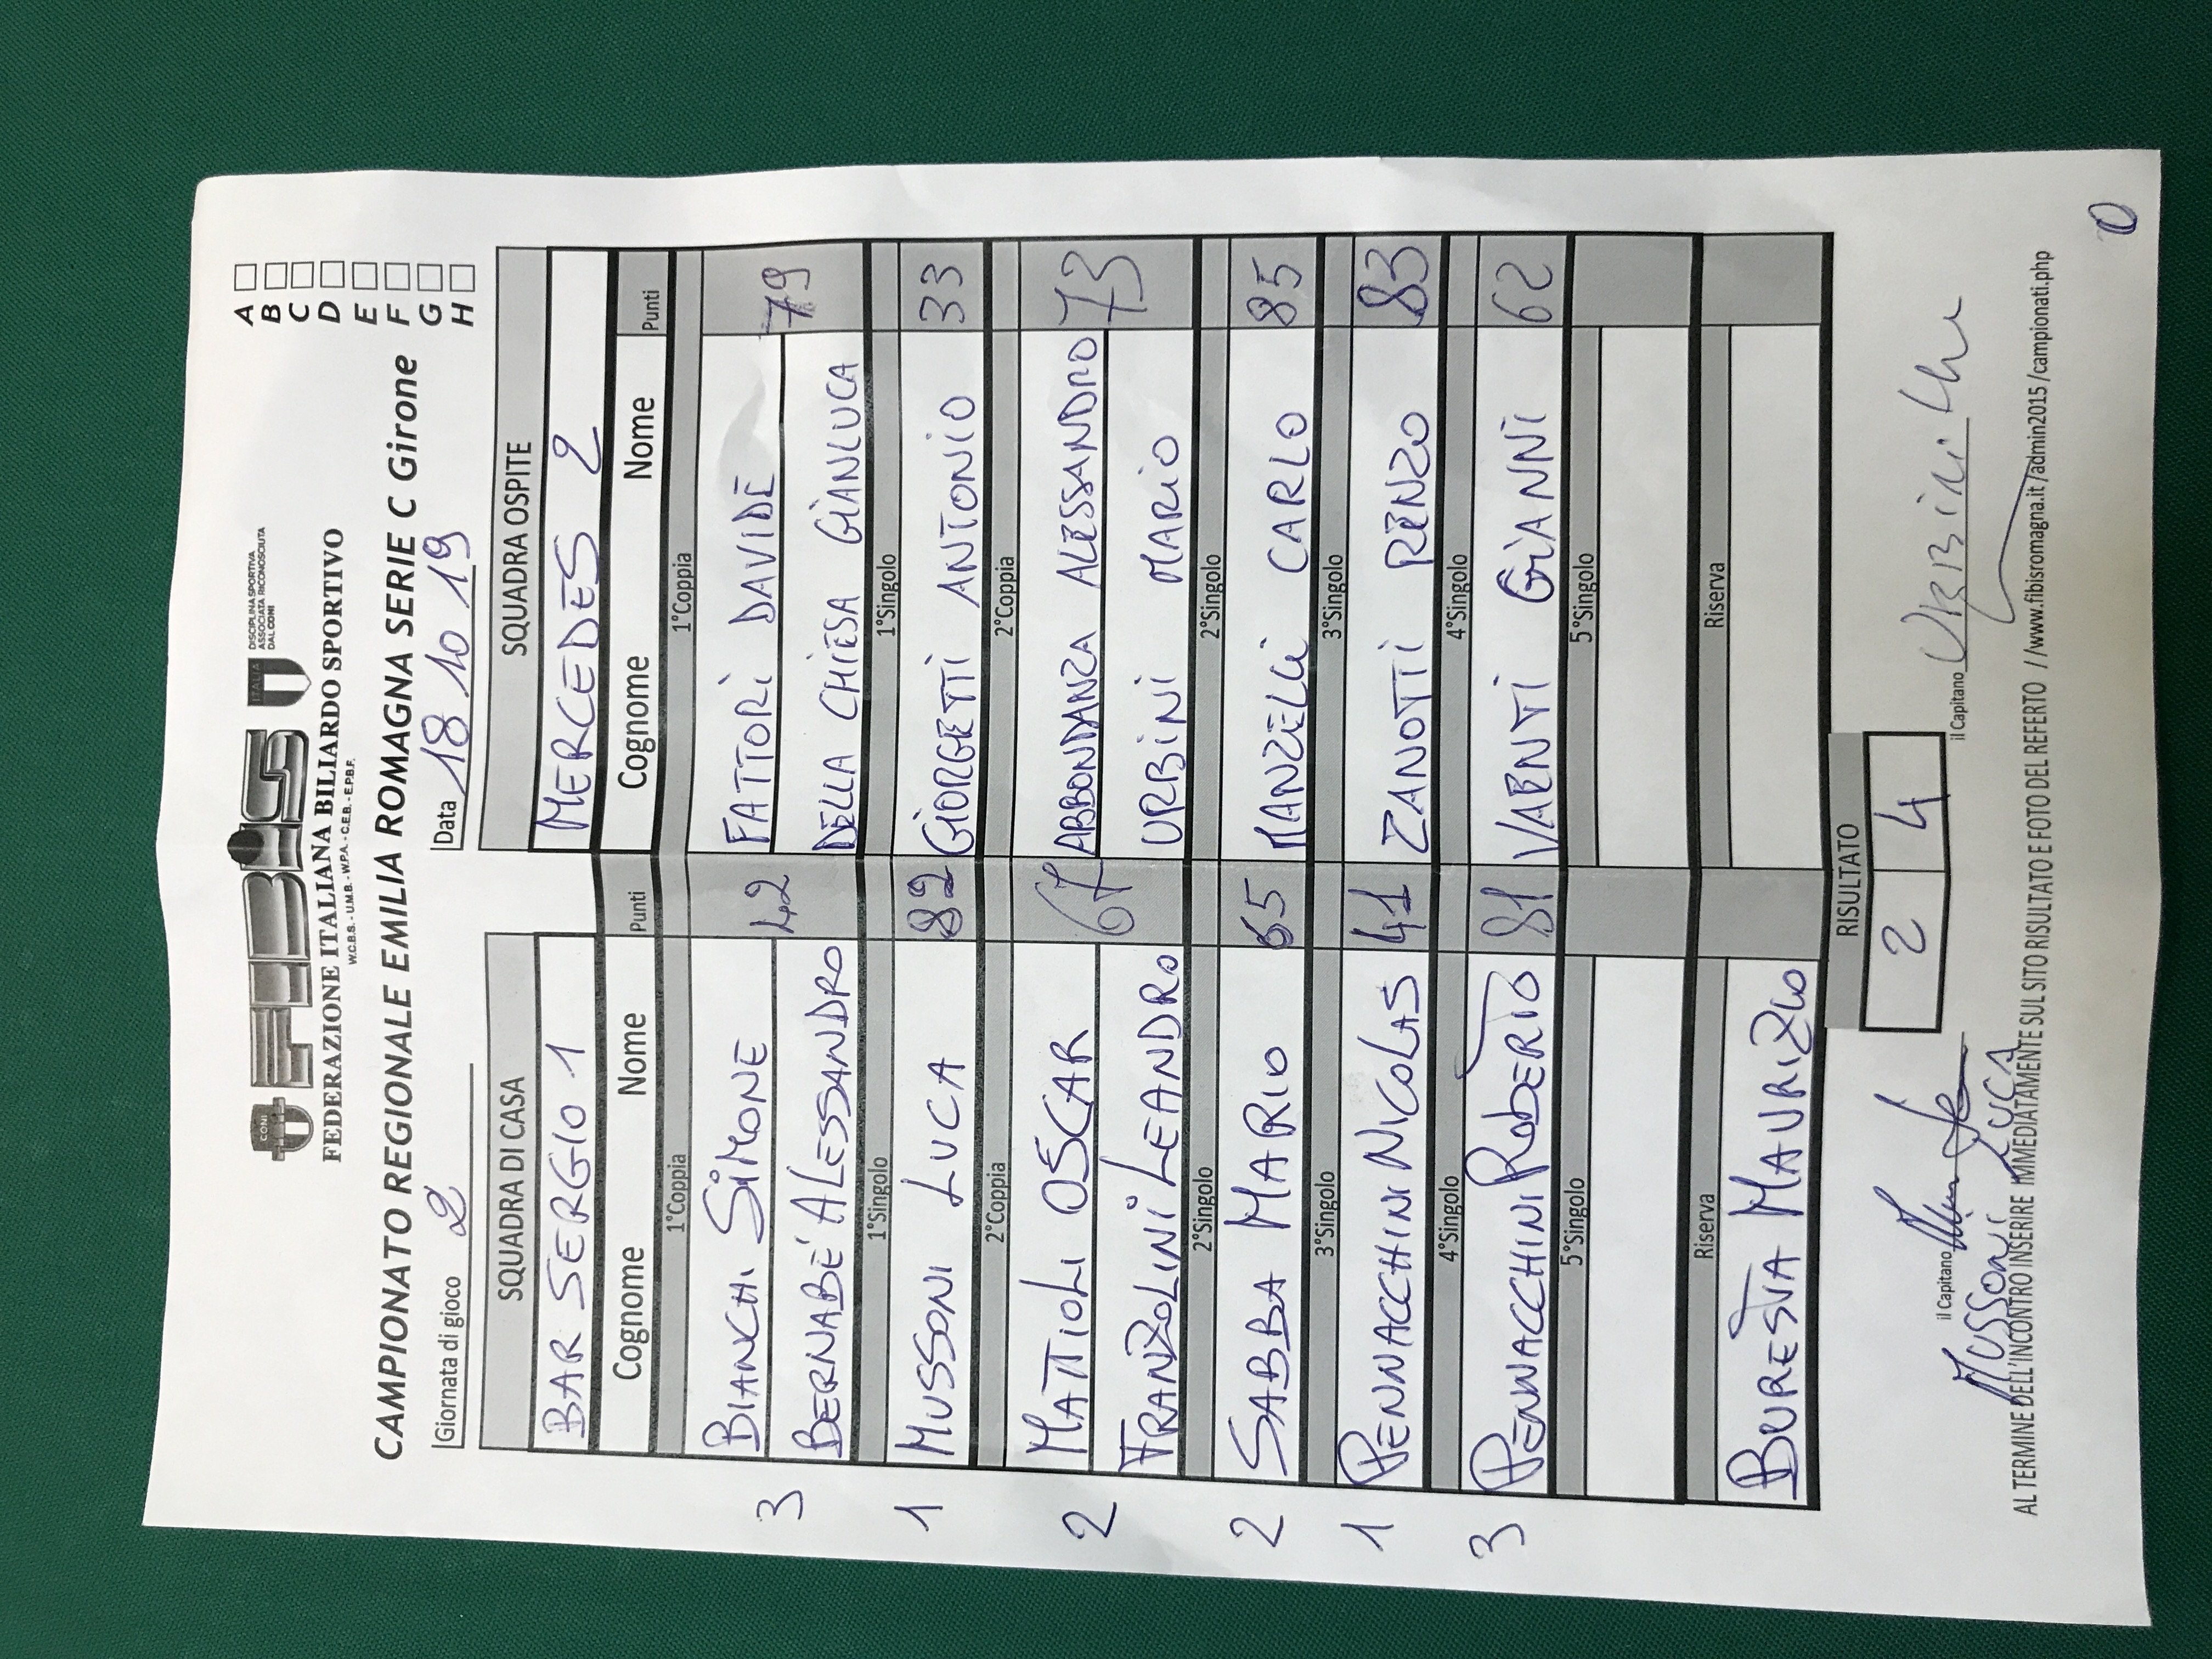 CONI
FIBiS
ITALIA
DISCIPLINA SPORTIVA
ASSOCIATA RICONOSCIUTA
DAL CONI
FEDERAZIONE ITALIANA BILIARDO SPORTIVO
W.C.B.S. - U.M.B. - W.P.A. - C.E.B. - E.P.B.F.
CAMPIONATO REGIONALE EMILIA ROMAGNA SERIE C Girone
A
B
C
D
E
F
G
H
Giornata di gioco 2 Data 18 10 19
SQUADRA DI CASA SQUADRA OSPITE
BAR SERGIO 1 MERCEDES 2
Cognome Nome Punti Cognome Nome Punti
1°Coppia 1°Coppia
BIANCHI SiMONE FATTORI DAVIDE
3 42 79
BERNABE' ALESSANDRO DELLA CHIESA GIANLUCA
1°Singolo 1°Singolo
1 MUSSONI LUCA 82 GIORGETTI ANTONIO 33
2°Coppia 2°Coppia
MATTIOLI OSCAR ABBONDANZA ALESSANDRO
2 67 73
FRANZOLINI LEANDRO URBINI MARIO
2°Singolo 2°Singolo
2 SABBA MARIO 65 MANZELLI CARLO 85
3°Singolo 3°Singolo
1 PENNACCHINI NICOLAS 41 ZANOTTI RENZO 83
4°Singolo 4°Singolo
3 PENNACCHINI ROBERTO 81 GIANNI 62
5°Singolo 5°Singolo
Riserva Riserva
BURESTA MAURIZIO
RISULTATO
2 4
il Capitano il Capitano
MUSSONI LUCA
AL TERMINE DELL'INCONTRO INSERIRE IMMEDIATAMENTE SUL SITO RISULTATO E FOTO DEL REFERTO //www.fibisromagna.it/admin2015/campionati.php